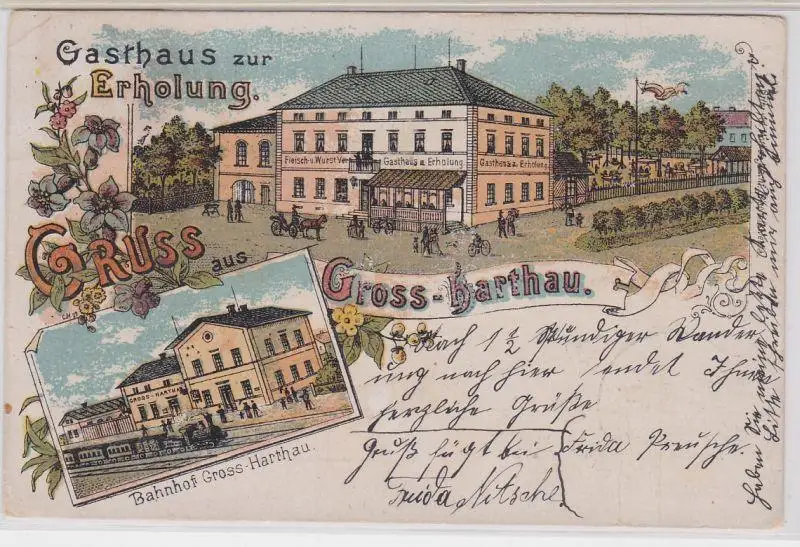 Gasthaus zur
Erholung.
Fleisch- u. Wurst
Gasthaus z. Erholung.
Gasthaus z. Erholung.
GRUSS aus
Gross-Harthau.
GROSS-HARTHAU
Bahnhof Gross-Harthau.
Nach 1 1/2 stündiger Wander
ung nach hier sendet Ihnen
herzliche Grüße
Gruß fügt bei Frida Preusche.
Frida Nitsche
Haben Sie meine letzte Karte
Bitte schreiben mir